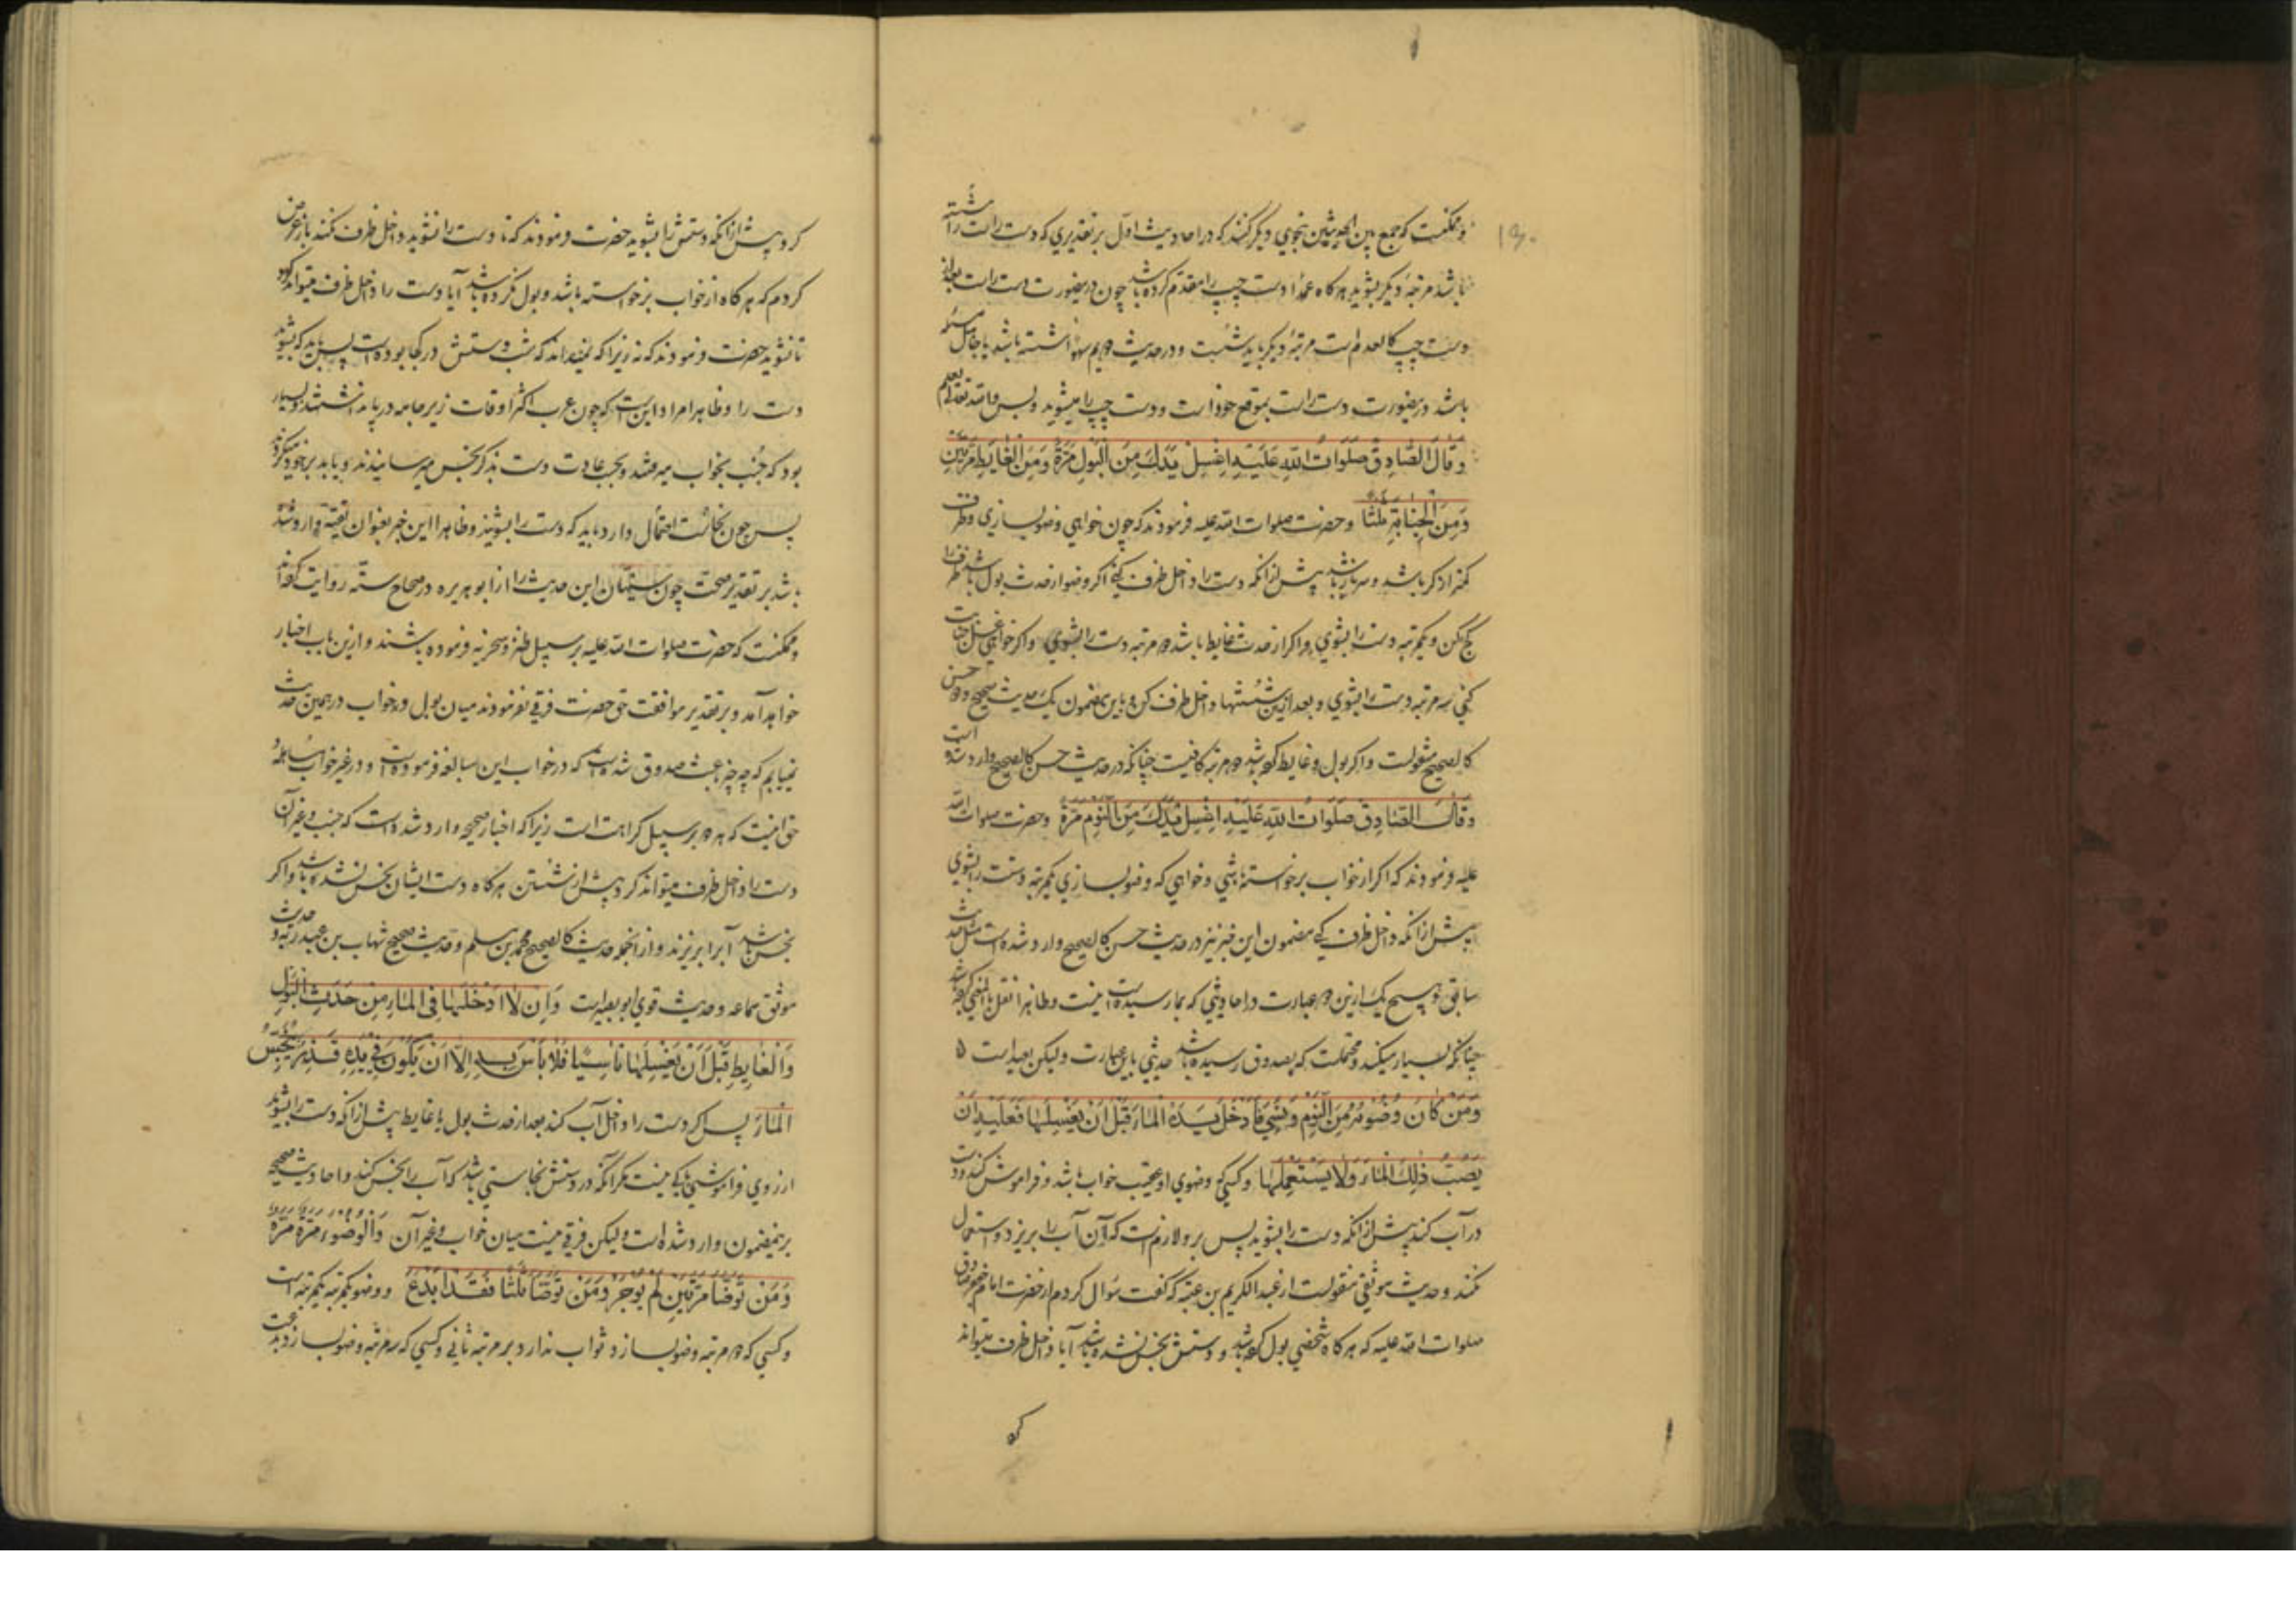 و ممکنست که جمع بین الحدیثین بنحوي دیکر کنند که در احادیث اول بر تقدیري که دست راست را شسته
باشد مرتبهٔ دیکر بشوید هرکاه عمداً دست چپ را مقدم کرده باشد چون درینصورت دست راست بعد از
دست چپ کالعدم است مرتبهٔ دیکر باید شست و در حدیث دویم سهواً شسته باشد یا جاهل مسئله
باشد درینصورت دست راست بموقع خود است و دست چپ را میشوید و بس و الله تعالی یعلم
و قال الصادق صلوات الله علیه اغسل یدک من البول مرة و من الغایط مرتین
و من الجنابة ثلثا و حضرت صلوات الله علیه فرمودند که چون خواهي وضو بسازي و ظرفت
کمتر از کر باشد و سرباز باشد پیش از انکه دست را داخل ظرف کني اکر وضو از حدث بول باشد ظرف را
کج کن و یکمرتبه دست را بشوي و اکر از حدث غایط باشد دو مرتبه دست را بشوي و اکر خواهي غسل جنابت
کني سه مرتبه دست را بشوي و بعد ازین شستنها داخل ظرف کن و باین مضمون یک حدیث صحیح و دو حسن
کالصحیح منقولست و اکر بول و غایط کرده باشد دو مرتبه کافیست چنانکه در حدیث حسن کالصحیح وارد شده است
و قال الصادق صلوات الله علیه اغسل یدک من النوم مرة و حضرت صلوات الله
علیه فرمودند که اکر از خواب برخواسته باشي و خواهي که وضو بسازي یکمرتبه دست را بشوي
پیش از انکه داخل ظرف کني مضمون این خبر نیز در حدیث حسن کالصحیح وارد شده است مثل حدیث
سابق و هیچ یک ازین دو عبارت در احادیثي که بما رسیده است نیست و ظاهرا نقل بالمعني کرده باشد
چنانکه بسیار میکند و محتملست که بصدوق رسیده باشد حدیثي باین عبارت و لیکن بعید است
و من کان وضوءه من النوم و نسي فادخل یده الماء قبل ان یغسلها فعلیه ان
یصب ذلک الماء و لا یستعملها و کسي که وضوي او عقیب خواب باشد و فراموش کند و دست
در آب کند پیش از انکه دست را بشوید پس برو لازم است که آن آب را بریزد و استعمال
نکند و حدیث موثقي منقولست از عبد الکریم بن عتبه که کفت سؤال کردم از حضرت امام جعفر صادق
صلوات الله علیه که هرکاه شخصي بول کرده باشد و دستش نجس نشده باشد آیا داخل ظرف میتواند
کرد
کرد پیش از انکه دستش را بشوید حضرت فرمودند که نه تا دست را نشوید داخل ظرف نکند باز عرض
کردم که هرکاه از خواب برخواسته باشد و بول نکرده باشد آیا دست را داخل ظرف میتواند کرد
تا نشوید حضرت فرمودند که نه زیرا که نمیداند که شب دستش در کجا بوده است پس باید که بشوید
دست را و ظاهرا مراد این است که چون عرب اکثر اوقات زیرجامه در پا نداشتند و بسیار
بود که جنب بخواب میرفتند و بحسب عادت دست بذکر نجس میرسانیدند و یا بدبر خود میکردند
پس چون نجاست احتمال دارد باید که دست را بشویند و ظاهرا این خبر بعنوان تقیه وارد شده
باشد بر تقدیر صحت چون سنیان این حدیث را از ابو هریره در صحاح سته روایت کرده اند
و ممکنست که حضرت صلوات الله علیه بر سبیل طنز و سخریه فرموده باشند و ازین باب اخبار
خواهد آمد و بر تقدیر موافقت حق حضرت فرقي نفرمودند میان بول و خواب در همین حدیث
نمییابم که چه چیز باعث صدوق شده است که در خواب این مبالغه فرموده است و در غیر خواب مساهله و
حق اینست که هر دو بر سبیل کراهت است زیرا که اخبار صحیحه وارد شده است که جنب و غیر آن
دست را داخل ظرف میتواند کرد پیش از شستن هرکاه دست ایشان نجس نشده باشد و اکر
نجس باشد آبرا بریزند و از انجمله حدیث کالصحیح محمد بن مسلم و حدیث صحیح شهاب بن عبد ربه و حدیث
موثق سماعه و حدیث قوي ابو بصیر است و ان لا ادخلها في الماء من حدث البول
و الغایط قبل ان یغسلها ناسیا فلا بأس به الا ان یکون في یده قذر ینجس
الماء پس اکر دست را داخل آب کند بعد از حدث بول یا غایط پیش از انکه دست را بشوید
از روي فراموشي باکي نیست مکر انکه در دستش نجاستي باشد که آب را نجس کند و احادیث صحیحه
برینمضمون وارد شده است و لیکن فرقي نیست میان خواب و غیر آن و الوضوء مرة مرة
و من توضأ مرتین لم یوجر و من توضأ ثلثا فقد ابدع و وضو یکمرتبه یکمرتبه است
و کسي که دو مرتبه وضو بسازد ثواب ندارد بر مرتبه ثاني و کسي که سه مرتبه وضو بسازد بدعت